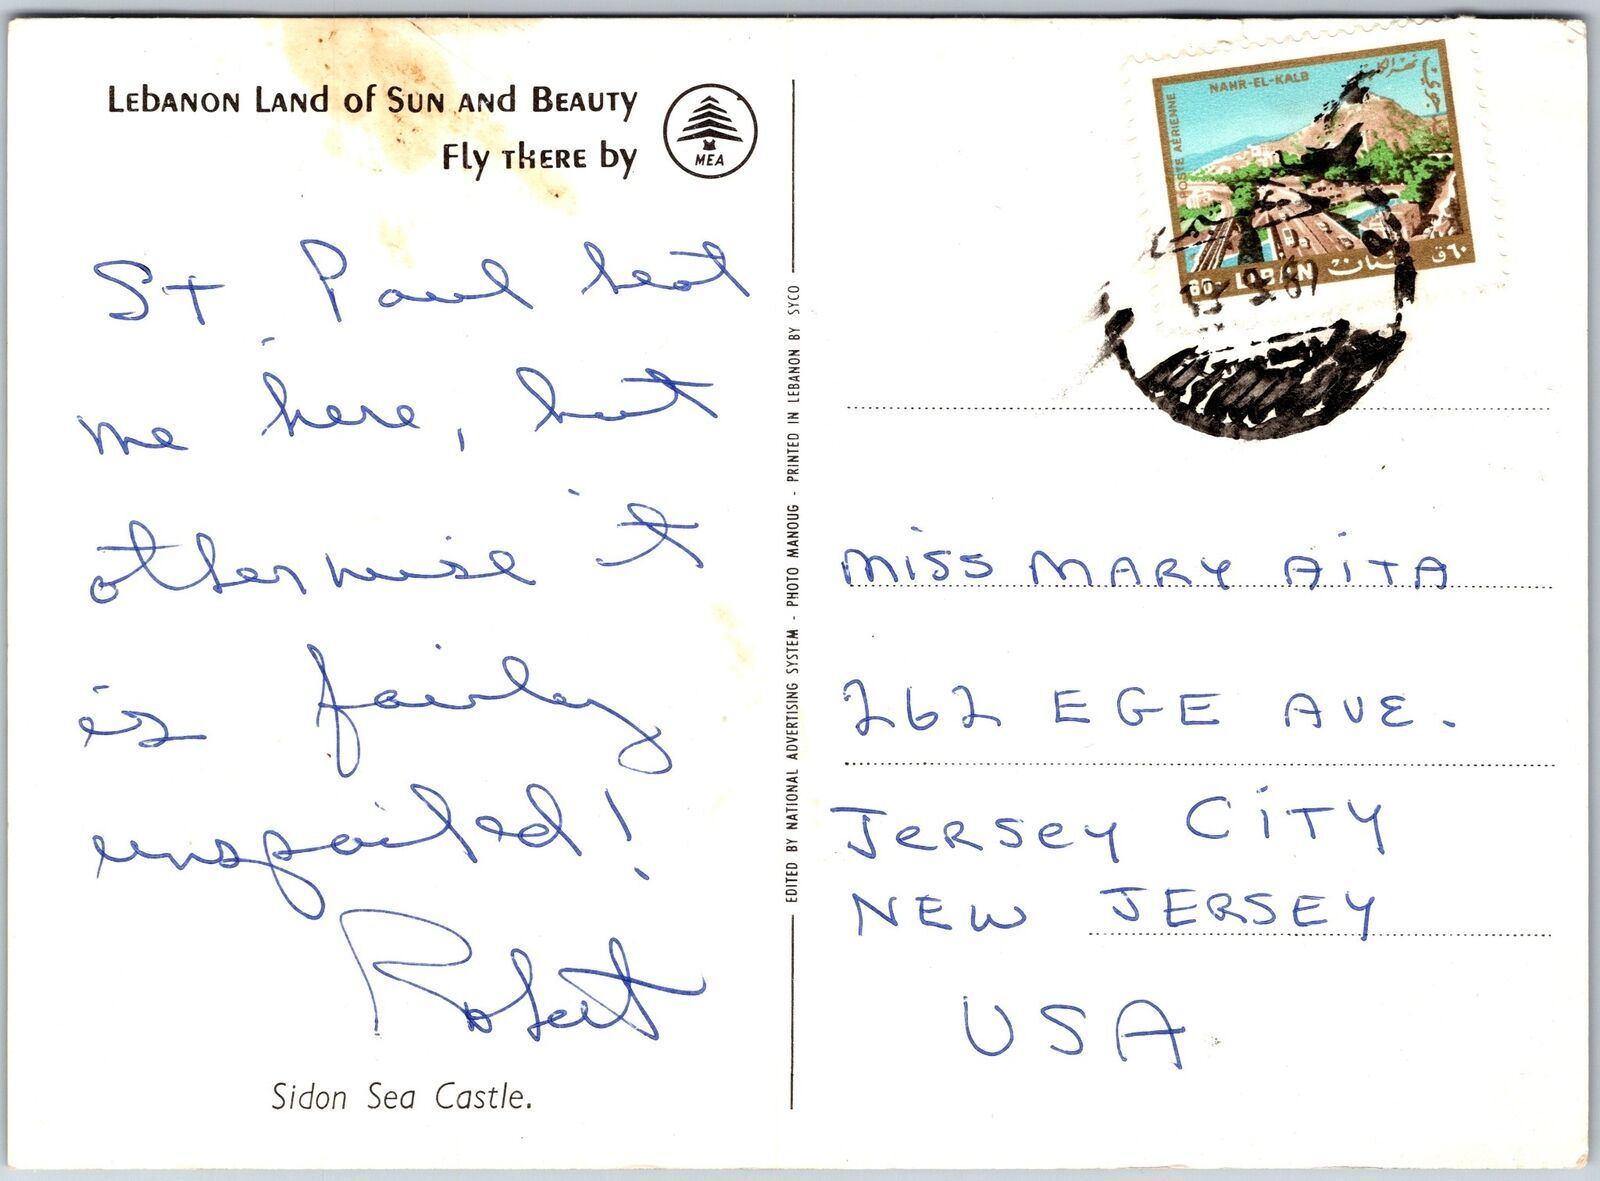 Lebanon Land of Sun and Beauty
Fly there by
MEA
St Paul beat
me here, but
otherwise it
is fairly
unspoiled!
Robert
Sidon Sea Castle.
EDITED BY NATIONAL ADVERTISING SYSTEM - PHOTO MANOUG - PRINTED IN LEBANON BY SYCO
NAHR-EL-KALB
POSTE AÉRIENNE
60P LIBAN لبنان ٦٠ق
MISS MARY AITA
262 EGE AVE.
JERSEY CITY
NEW JERSEY
USA